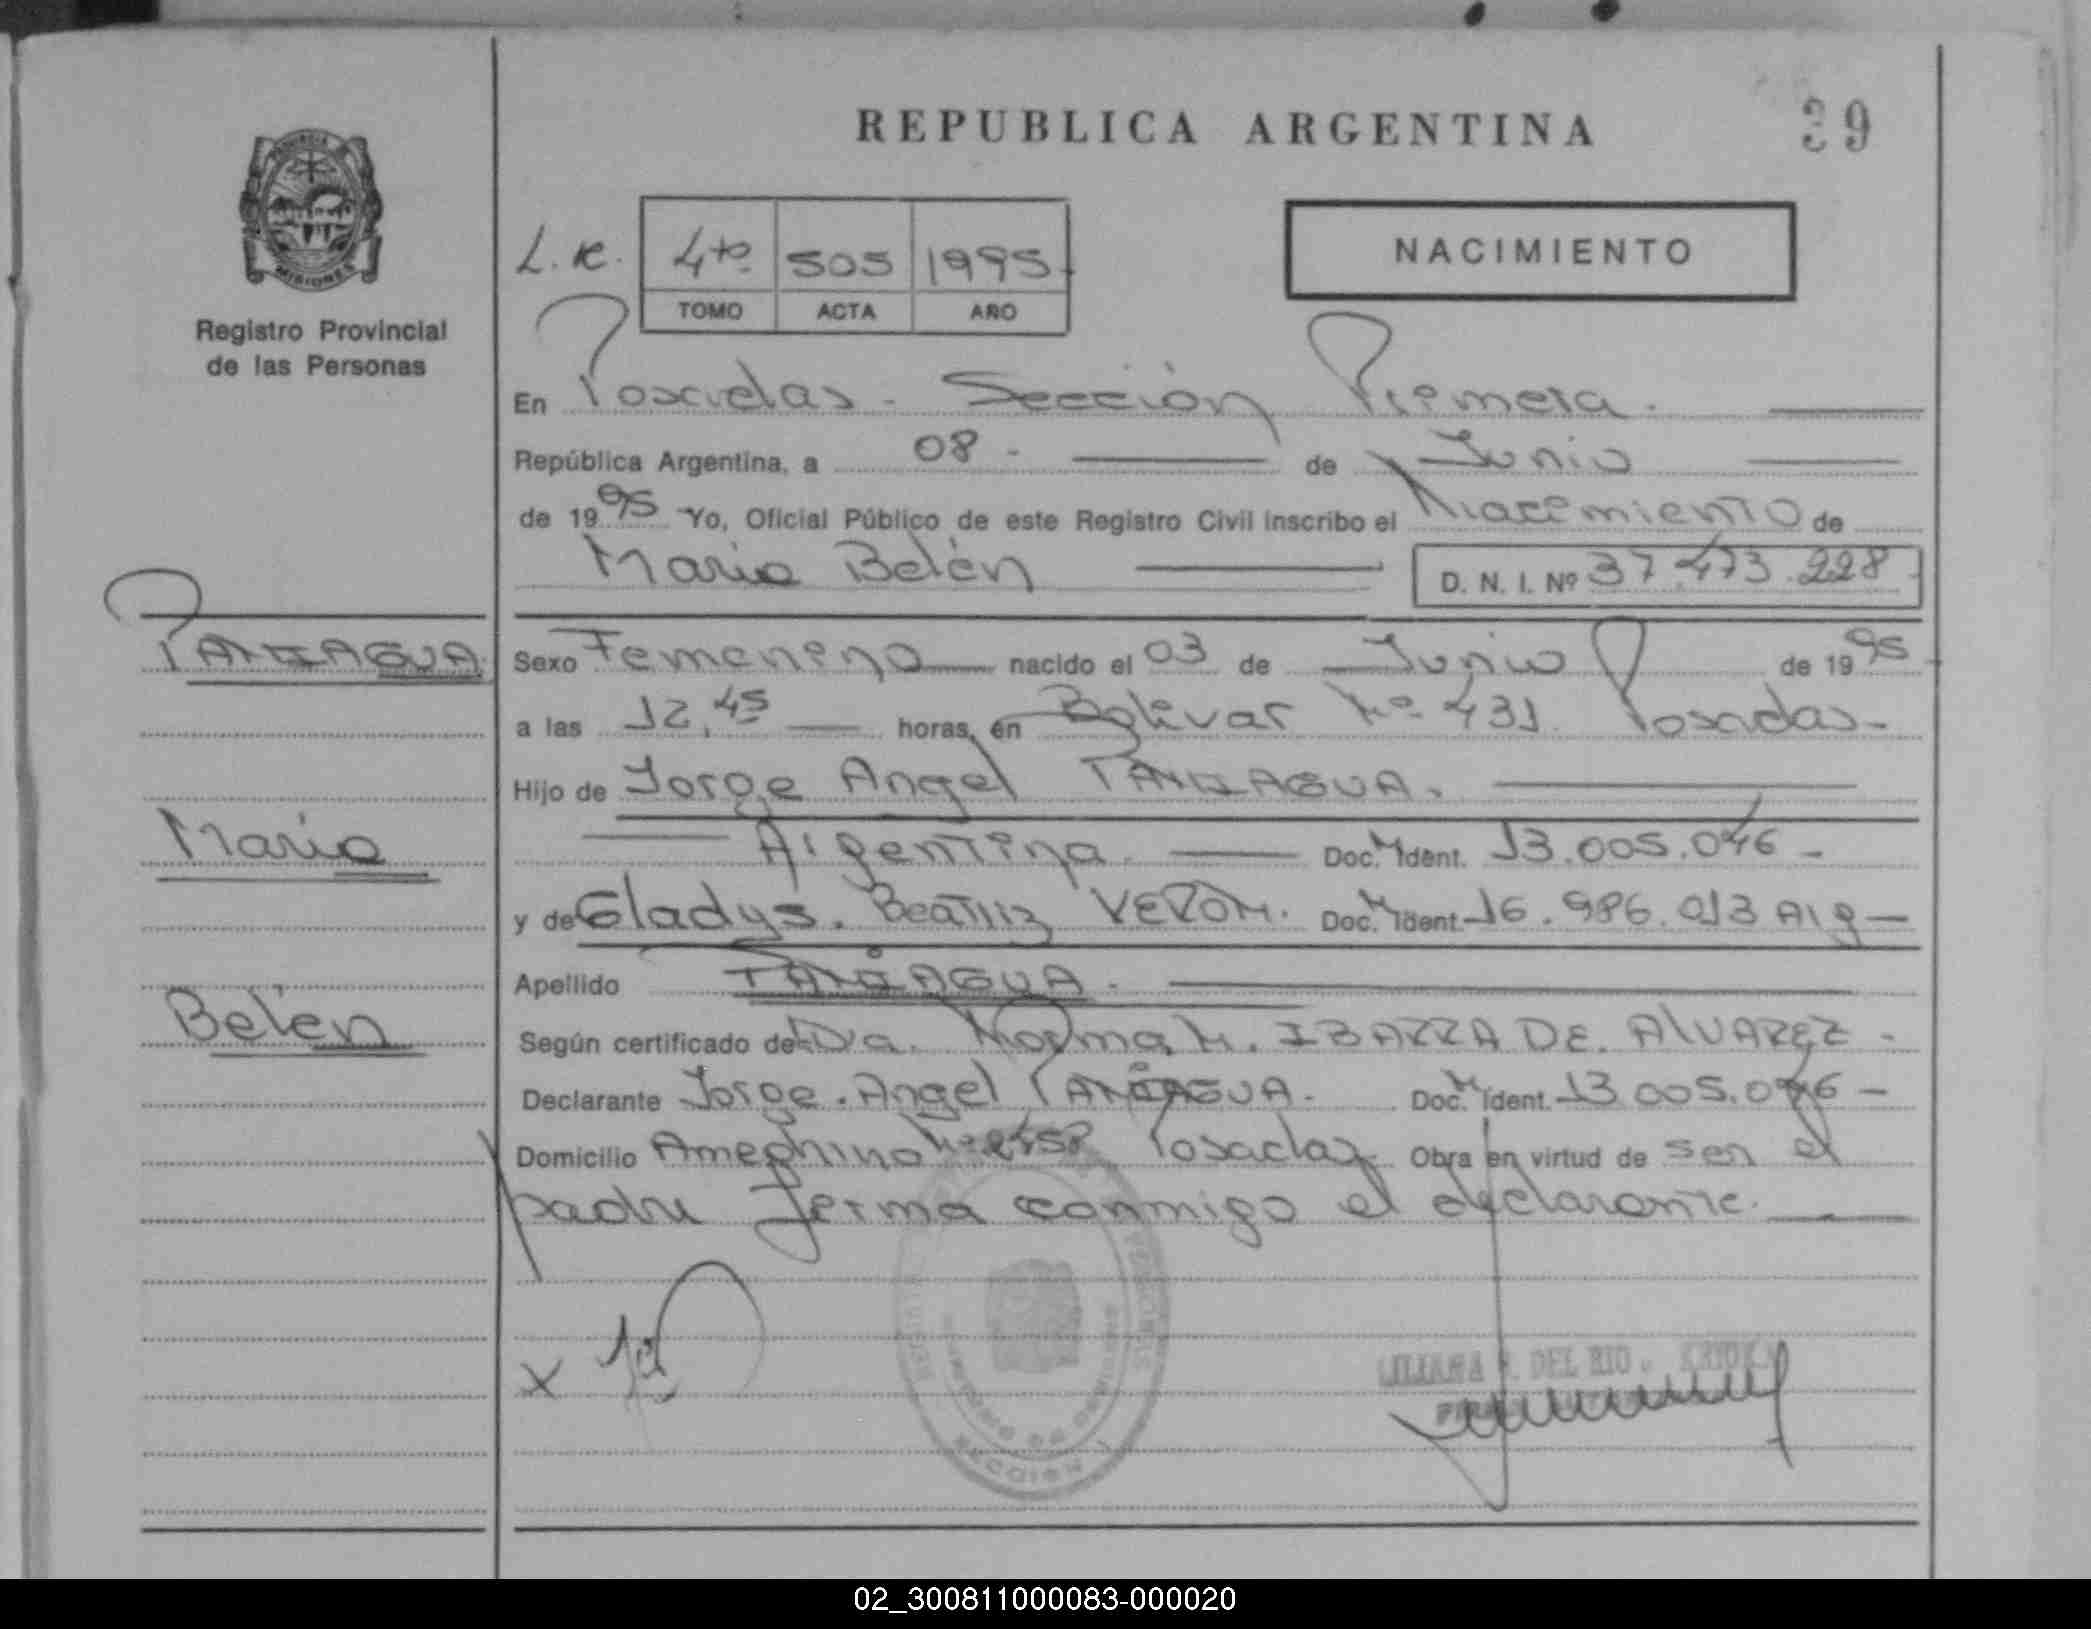 REPUBLICA ARGENTINA
39
PROVINCIA DE
MISIONES
Registro Provincial
de las Personas
L.R. 4to 505 1995
TOMO ACTA AÑO
NACIMIENTO
En Posadas - Sección Primera.
República Argentina, a 08 - de Junio
de 1995 Yo, Oficial Público de este Registro Civil inscribo el Nacimiento de
Maria Belén D. N. I. Nº 37.473.228
PANIAGUA
Sexo Femenino nacido el 03 de Junio de 1995
a las 12,45 horas, en Bolivar Nº 431. Posadas-
Hijo de Jorge Angel PANIAGUA.
Maria
Argentina. Doc. Ident. 13.005.046 -
y de Gladys. Beatriz VERON. Doc. Ident. 16.986.013 Arg
Apellido PANIAGUA.
Belén
Según certificado de Dra. Norma M. IBARRA DE. ALVAREZ -
Declarante Jorge. Angel PANIAGUA. Doc. Ident. 13.005.046 -
Domicilio Ameghino Posadas Obra en virtud de ser el
padre firma conmigo el declarante.
X
LILIANA DEL RIO
SECCION 1
02_300811000083-000020